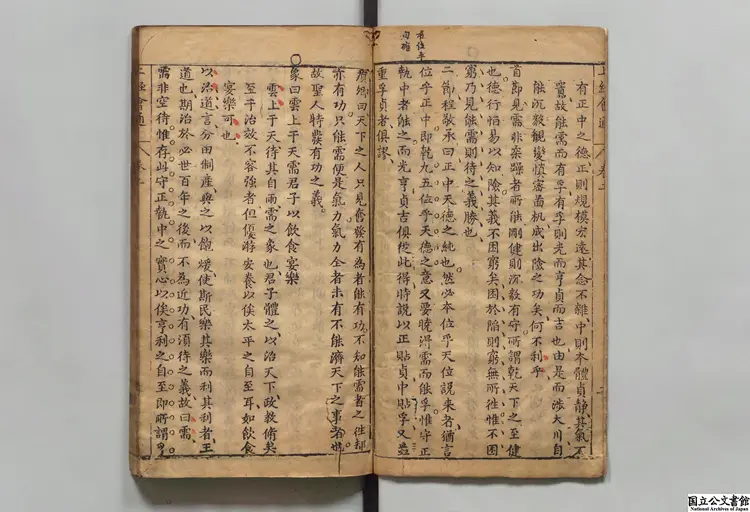 有正中之德正則規模宏遠其念不雜中則本體貞靜其氣不
故能需而有孚有孚則光而亨貞而吉也由是而涉大川自
能沉毅觀變慎審啚机成出險之功矣何不利乎
首節見需非柔躁者所能剛健則沉毅有守所謂乾天下之至健
也德行恒易以知險其義不困窮矣困於陷則窮無所往惟不困
窮乃見能需則待之義勝也
在位乎
二節程敬承曰正中天德之純也然必本位乎天位說來者猶言
位乎正中即乾九五位乎天德之意又要曉得需而能孚惟守正
執中者能之而光亨貞吉俱從此得時說以正貼貞中貼孚又
重孚貞者俱謬
曰天下之人只見奮發有為者能有功不知能需者之往却
亦有功只能需便是氣力氣力全者未有不能濟天下之事者也
故聖人特發有功之義
象曰雲上于天需君子以飲食宴樂
雲上于天待其自雨需之象也君子體之以治天下政教脩矣
至于治效不容強者但優游安養以俟太平之自至耳如飲食
宴樂可也
以治道言分田制產與之以飽煖使斯民樂其樂而利其利者王
道也期治於必世百年之後而不為近功有須待之義故曰需
需非空待惟存此守正執中之實心以俟亨利之自至即所謂孚
上經會通
国立公文書館
National Archives of Japan